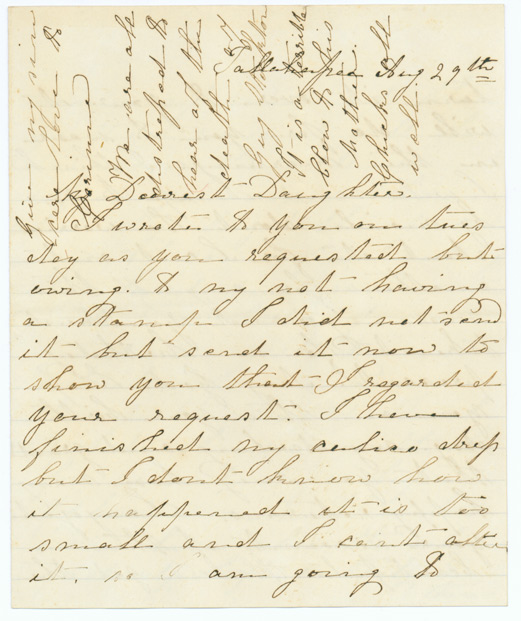 Tallahassee Aug 29th
My Dearest Daughter.
I wrote to you on tues
day as you requested but
owing. to my not having
a stamp I did not send
it but send it now to
show you that I regarded
your request. I have
finished my calico dress
but I dont know how
it happened it is too
small and I cant alter
it. so I am going to
Give my sin
cere love to
We are all
distressed to
hear of the
death of
Guy
It is a terrible
blow to his
Mother.
all
well.